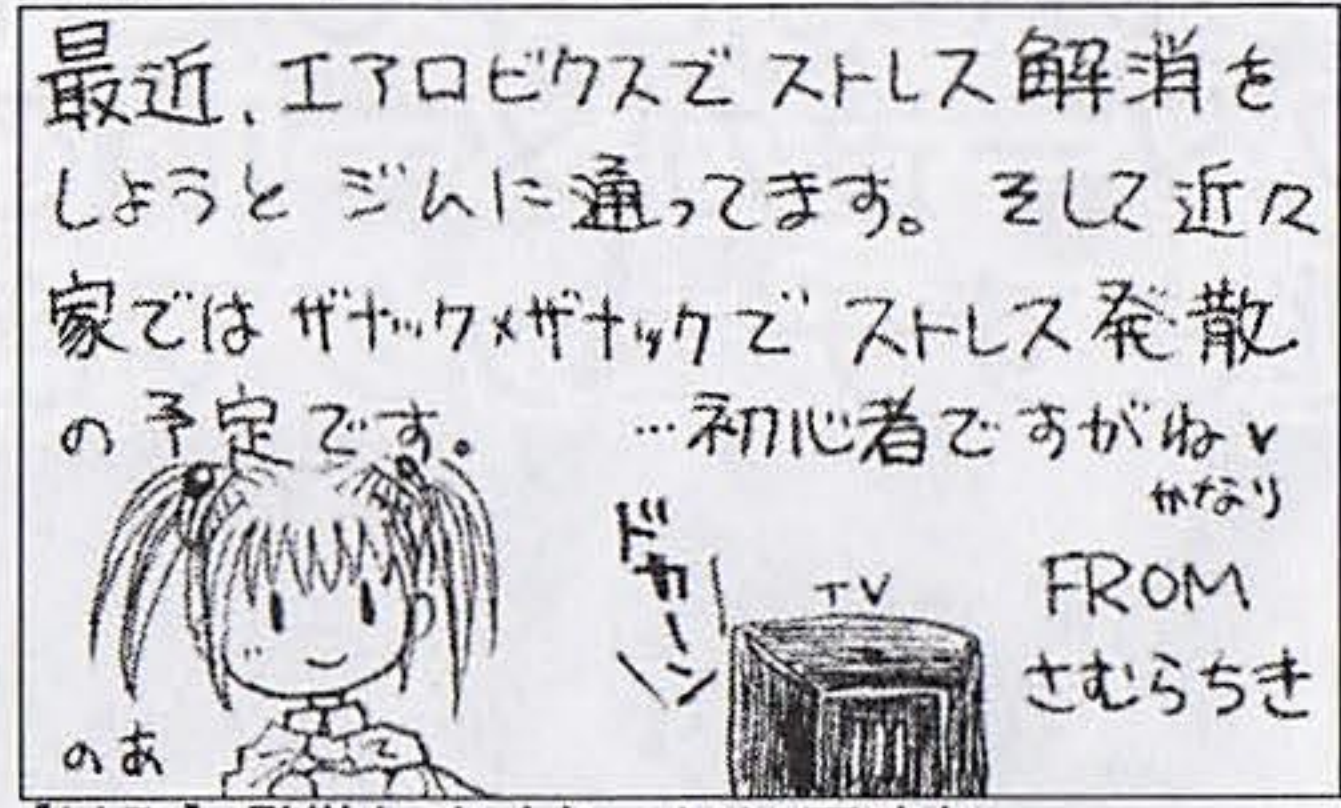 最近、エアロビクスでストレス解消を
しようと ジムに通ってます。 そして近々
家では ザナック×ザナックで ストレス発散
の予定です。 …初心者ですがね
かなり
ドカーン
TV
FROM
さむらちき
のあ